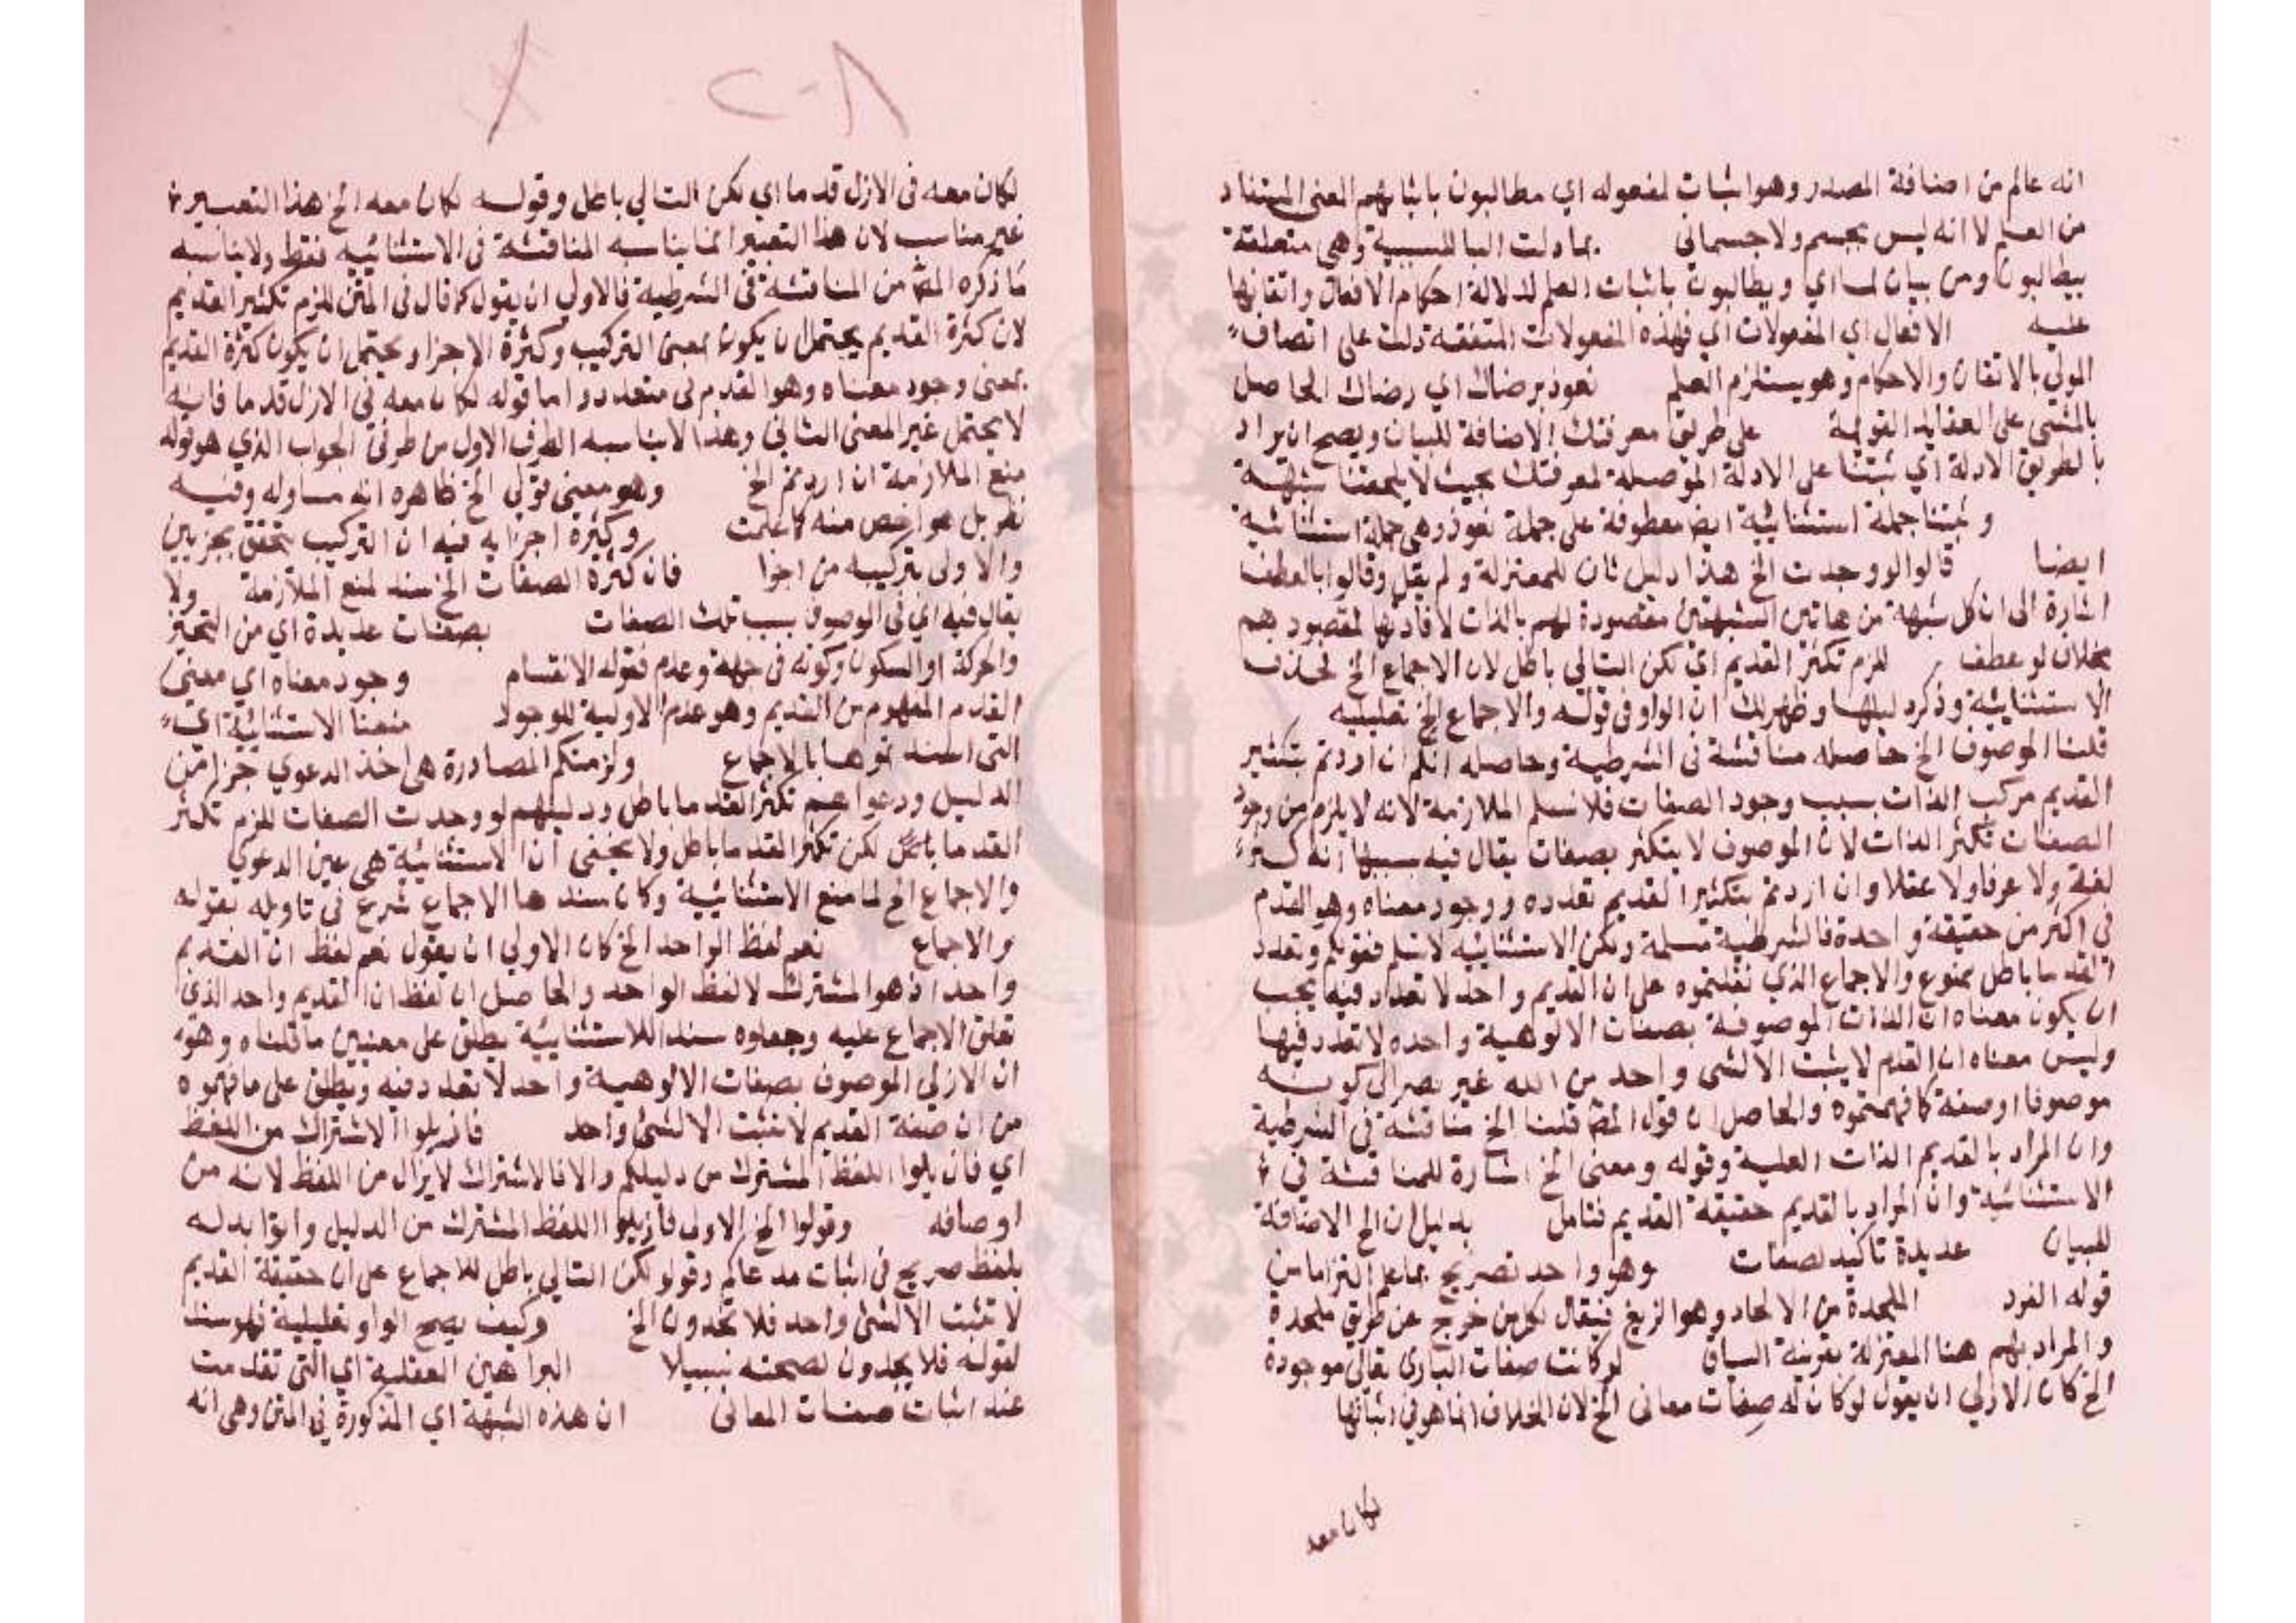 انه عالم من اضافة المصدر وهو اثبات لمفعوله اي مطالبون باثباتهم المعنى المستفاد
من العلم لا انه ليس بجسم ولا جسماني بما دلت البا للسببية وهي متعلقة
بيطالبون ومن بيان لما اي ويطالبون باثبات العلم لدلالة احكام الافعال واتقانها
عليه الافعال اي المفعولات اي فهذه المفعولات المتفقة دلت على اتصاف
المولي بالاتقان والاحكام وهو يستلزم العلم نعوذ برضاك اي رضاك الحاصل
بالمشى على العقايد القويمة على طريق معرفتك الاضافة للبيان ويصح ان يراد
بالطريق الادلة اي ثبتنا على الادلة الموصلة لمعرفتك بحيث لا يلحقنا شبهة
وثبتنا جملة استئنائية ايض معطوفة على جملة نعوذ وهي جملة استئنائية
ايضا قالوا لو وجدت الخ هذا دليل ثان للمعتزلة ولم يقل وقالوا بالعطف
اشارة الى ان كل شبهة من هاتين الشبهتين مقصودة لهم بالذات لافادتها لمقصودهم
بخلاف لو عطف للزم تكثر القديم اي لكن التالي باطل لان الاجماع الخ فحذف
الاستثنائية وذكر دليلها وظهر لك ان الواو في قوله والاجماع الخ تعليلية
قلنا الموصوف الخ حاصله مناقشة في الشرطية وحاصله انكم ان اردتم بتكثير
القديم مركب الذات بسبب وجود الصفات فلا نسلم الملازمة لانه لا يلزم من وجود
الصفات تكثر الذات لان الموصوف لا يتكثر بصفات يقال فيه بسببها انه كثير
لغة ولا عرفا ولا عقلا وان اردتم بتكثير القديم تعدده ووجود معناه وهو القدم
في اكثر من حقيقة واحدة فالشرطية مسلمة ولكن الاستثنائية لا نسلم فقولكم وتعدد
القدما باطل ممنوع والاجماع الذي نقلتموه على ان القديم واحد لا تعداد فيه يجب
ان يكون معناه ان الذات الموصوفة بصفات الالوهية واحده لا تعدد فيها
وليس معناه ان القدم لا يثبت الا لشى واحد من الله غير نصر الى كونه
موصوفا او صفة كما فهمتموه والحاصل ان قول المص قلنا الخ مناقشة في الشرطية
وان المراد بالقديم الذات العلية وقوله ومعنى الخ اشارة للمناقشة في
الاستثنائية وان المراد بالقديم حقيقة القديم فتامل بدليل ان الخ الاضافة
للبيان عديدة تاكيد لصفات وهو واحد تصريح بما علم التزاما من
قوله الفرد الملحدة من الالحاد وهو الزيغ فيقال لكل من خرج عن طريق ملحدة
والمراد بهم هنا المعتزلة بقرينة السياق لو كانت صفات البارى تعالى موجودة
الخ كان الاولي ان يقول لو كان له صفات معاني الخ لان الخلاف انما هو في اثباتها
لكان معه
لكان معه في الازل قدما اي لكن التالي باطل وقوله لكان معه الخ هذا التعبير
غير مناسب لان هذا التعبير انما يناسبه المناقشة في الاستثنائية فقط ولا يناسبه
ما ذكره المص من المناقشة في الشرطية فالاولي ان يقول كما قال في المتن للزم تكثير القديم
لان كثرة القديم يحتمل ان يكون بمعنى التركيب وكثرة الاجزا ويحتمل ان يكون كثرة القديم
بمعنى وجود معناه وهو القدم في متعدد واما قوله لكان معه في الازل قدما فانه
لا يحتمل غير المعنى الثاني وهذا لا يناسبه الطرف الاول من طرفي الجواب الذي هو قوله
منع الملازمة ان اردتم الخ وهو معنى قولي الخ ظاهره انه مساو له وفيه
نظر بل هو اخص منه كما علمت وكثرة اجزايه فيه ان التركيب يتحقق بجزيين
والاولى بتركيبه من اجزا فان كثرة الصفات الخ سند لمنع الملازمة ولا
يقال فيه اي في الموصوف بسبب تلك الصفات بصفات عديدة اي من التحيز
والحركة او السكون وكونه في جهة وعدم قوله الانقسام وجود معناه اي معنى
القدم المفهوم من القديم وهو عدم الاولية للوجود منعنا الاستثنائية اي
التى استند نموها بالاجماع ولزمتكم المصادرة هي اخذ الدعوي جزا من
الدليل ودعواهم تكثر القدما باطل ودليلهم لو وجدت الصفات للزم تكثر
القدما باطل لكن تكثر القدما باطل ولا يخفى ان الاستثنائية هي عين الدعوي
والاجماع الخ لما منع الاستثنائية وكان سندها الاجماع شرع في تاويله بقوله
والاجماع نعم لفظ الواحد الخ كان الاولي ان يقول نعم لفظ ان القديم
واحد اذ هو المشترك لا لفظ الواحد والحاصل ان لفظ ان القديم واحد الذي
تعلق الاجماع عليه وجعلوه سندا للاستثنائية يطلق على معنيين ما قلناه وهو
ان الازلي الموصوف بصفات الالوهية واحد لا تعدد فيه ويطلق على ما فهموه
من ان صفة القديم لا تثبت الا لشئ واحد فازيلوا الاشتراك من اللفظ
اي فازيلوا اللفظ المشترك من دليلكم والا فالاشتراك لا يزال من اللفظ لانه من
اوصافه وقولوا الخ الاولى فازيلوا اللفظ المشترك من الدليل واتوا بدله
بلفظ صريح في اثبات مدعاكم وقولو لكن التالي باطل للاجماع على ان حقيقة القديم
لا تثبت الا لشئ واحد فلا تجدون الخ وكيف يصح الواو تعليلية فهو سند
لقوله فلا يجدون لصحته سبيلا البراهين العقلية اي التى تقدمت
عند اثبات صفات المعانى ان هذه الشبهة اي المذكورة في المتن وهي انه